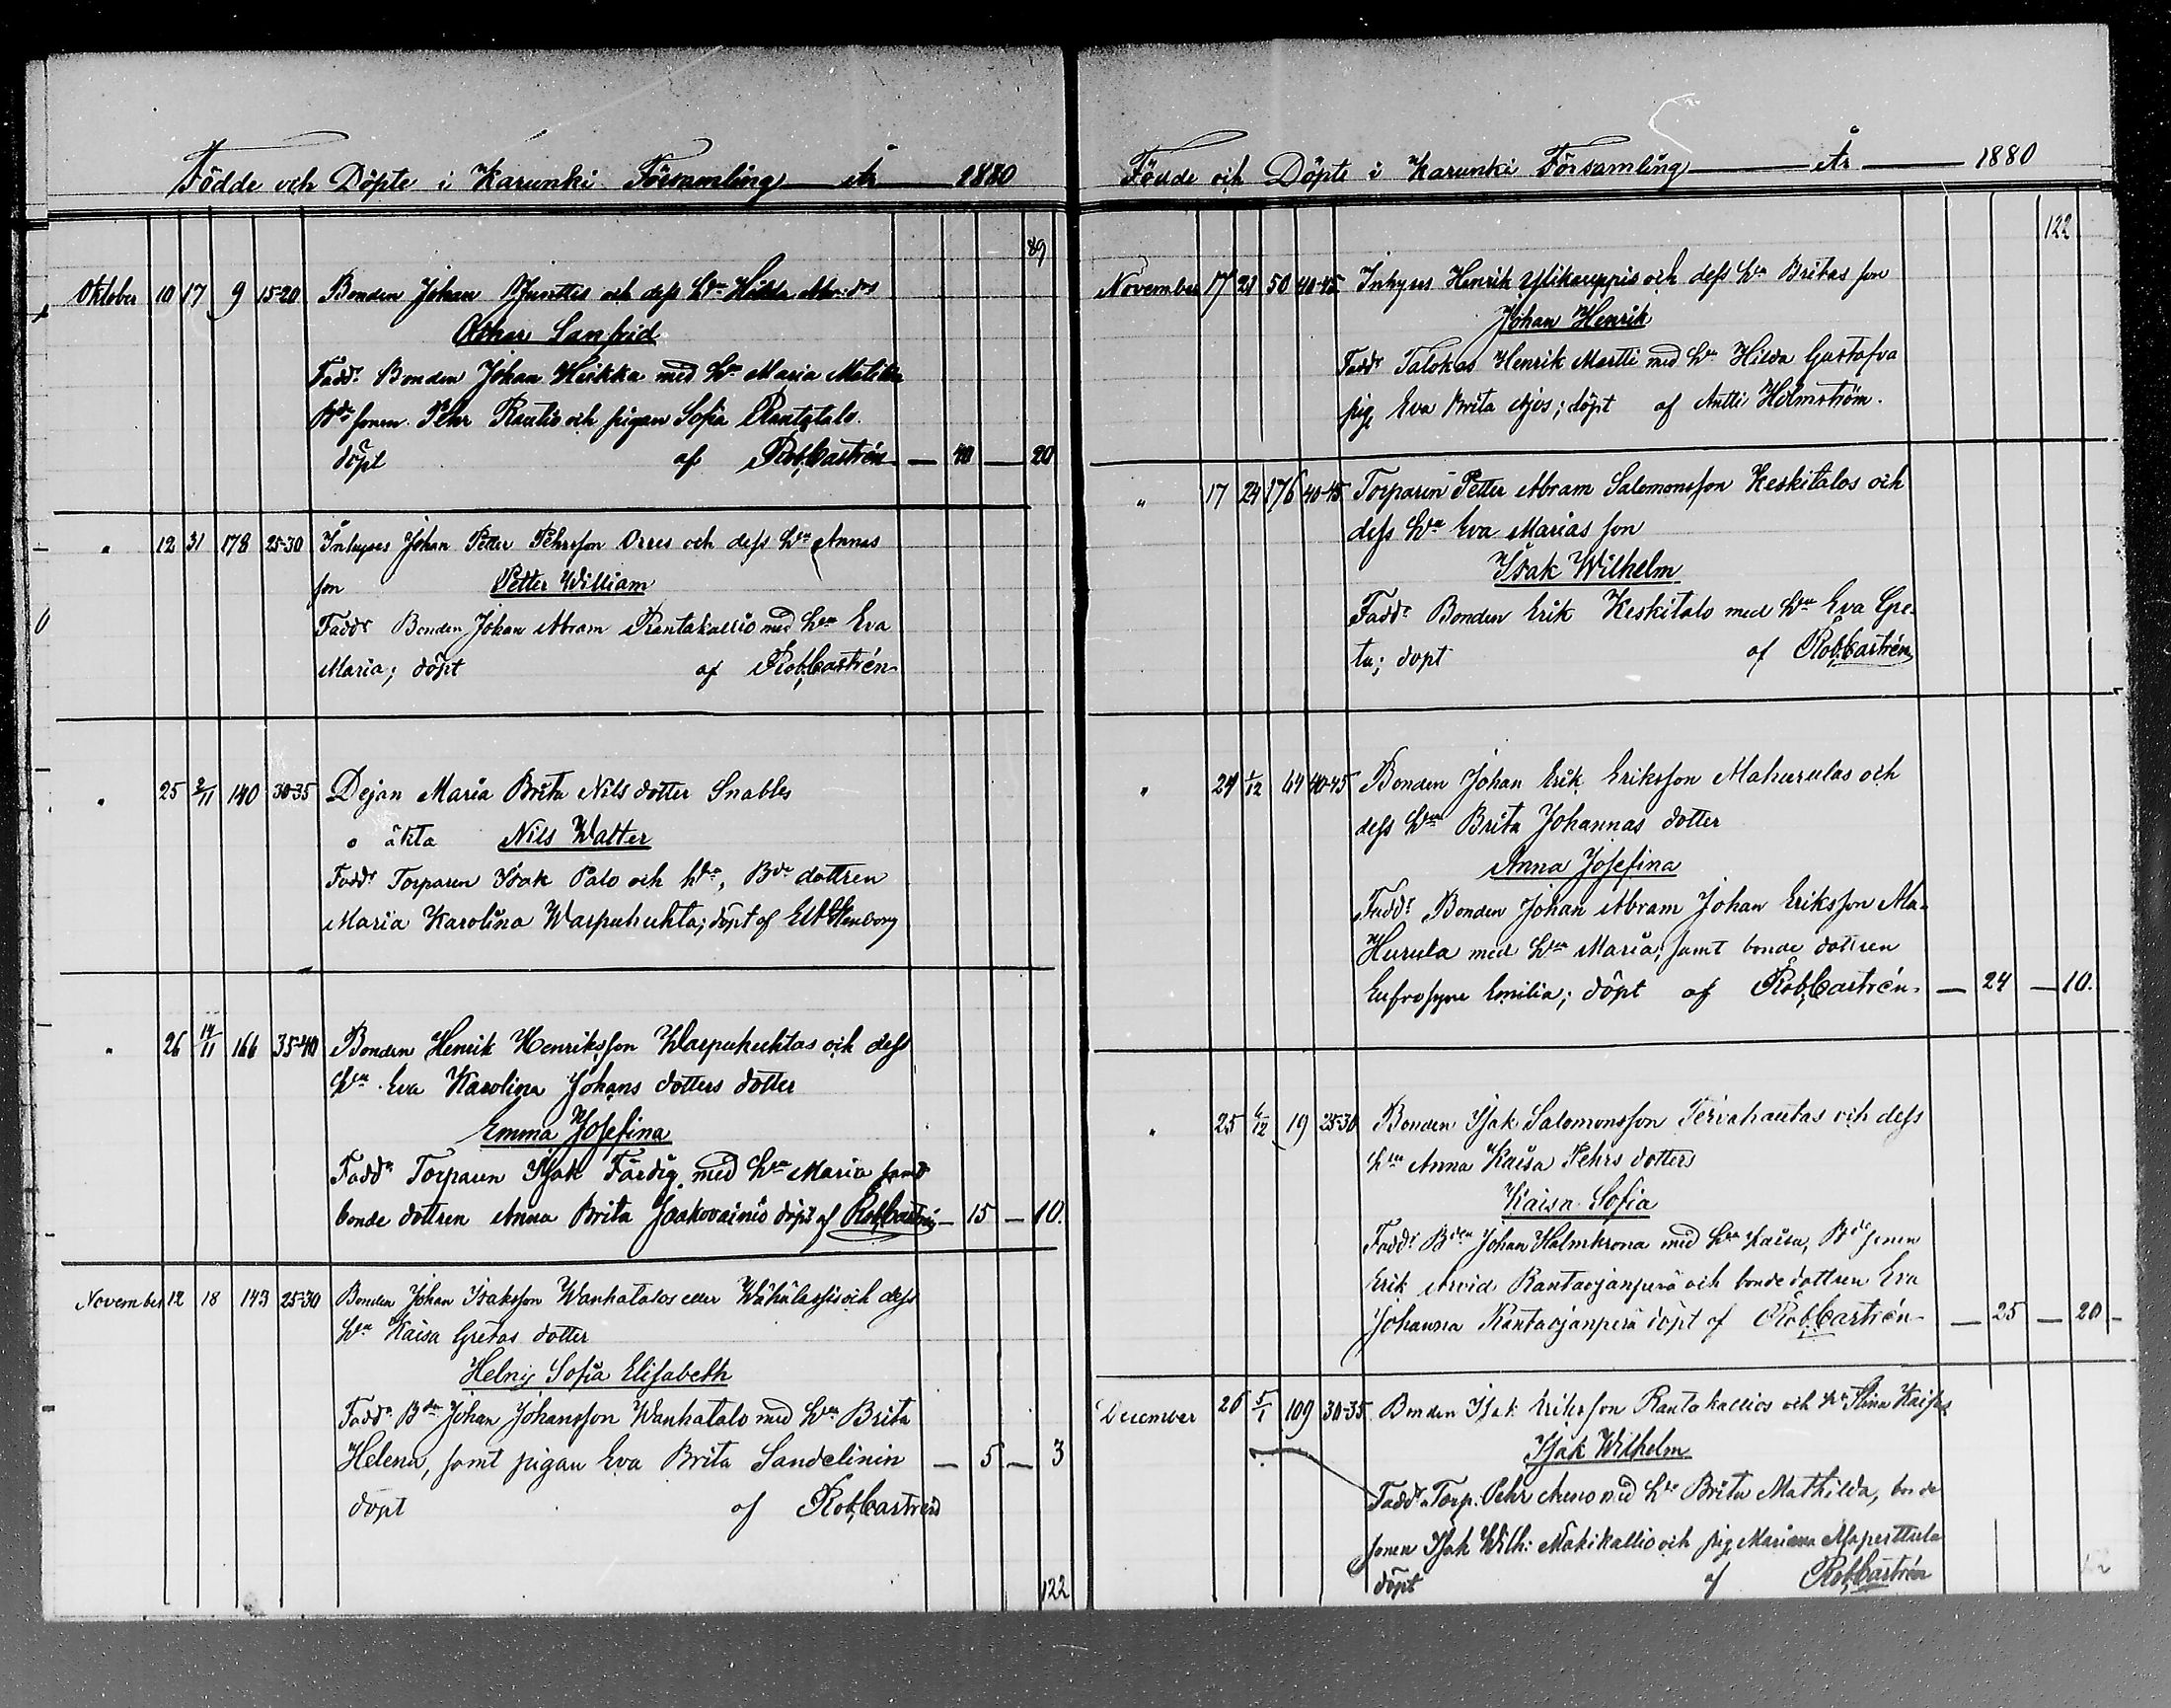 Födde och Döpte i Karunki Församling År 1880
89
Oktober 10 17 9 15-20 Bonden Johan Junttis och dess hu Hilda
Oskar Sanfrid
Fadd: Bonden Johan Heikka med hu Maria Matilda
Bde sonen Pehr Rautio och pigan Sofia Rantatalo
döpt af Rob. Castrén — 40 — 20
" 12 31 178 25-30 Inhyses Johan Petter Pehrsson Orres och dess hu Annas
son Petter William
Fadd: Bonden Johan Abram Rantakallio med hu Eva
Maria; döpt af Rob. Castrén
" 25 2/11 140 30-35 Dejan Maria Brita Nils dotter Snabbs
o äkta Nils Walter
Fadd: Torparen Isak Palo och hu, Bde dottren
Maria Karolina Warpuhuhta; döpt af
" 26 14/11 166 35-40 Bonden Henrik Henriksson Warpuhuhtas och dess
hu Eva Karolina Johans dotters dotter
Emma Josefina
Fadd: Torparen Isak Färdig med hu Maria samt
bonde dottren Anna Brita Jaakovainio döpt af Rob. Castrén — 15 — 10.
November 12 18 143 25-30 Bonden Johan Isaksson Wanhatalos eller och dess
hu Kaisa Gretas dotter
Helny Sofia Elisabeth
Fadd: Bdn Johan Johansson Wanhatalo med hu Brita
Helena, samt pigan Eva Brita Sandelinin — 5 — 3
döpt af Rob. Castrén
122
Födde och Döpte i Karunki Församling År 1880
122
November 17 21 50 40-45 Inhyses Henrik Ylikauppis och dess hu Britas son
Johan Henrik
Fadd: Talokas Henrik Martti med hu Hilda Gustafva
pig. Eva Brita Ajos; döpt af Antti Holmström.
" 17 24 176 40-45 Torparen Petter Abram Salomonsson Keskitalos och
dess hu Eva Marias son
Isak Wilhelm
Fadd: Bonden Erik Keskitalo med hu Eva Gre-
ta; döpt af Rob. Castrén
" 24 1/12 64 40-45 Bonden Johan Erik Eriksson Mahurulas och
dess hu Brita Johannas dotter
Anna Josefina
Fadd: Bonden Johan Abram Johan Eriksson Ala-
Hurula med hu Maria, samt bonde dottren
Eufrosyne Emilia; döpt af Rob. Castrén — 24 — 10.
" 25 6/12 19 25-30 Bonden Isak Salomonsson Tervahautas och dess
hu Anna Kaisa Pehrs dotters
Kaisa Sofia
Fadd: Bden Johan Halmkrona med hu Kaisa, Bde sonen
Erik Arvid Rantaojanperä och bonde dottren Eva
Johanna Rantaojanperä döpt af Rob. Castrén — 25 — 20 -
December 26 5/1 109 30-35 Bonden Isak Eriksson Rantakallios och hu Stina Kaisas
Isak Wilhelm
Fadd: Torp. Pehr med hu Brita Mathilda, bonde
sonen Isak Wilh: Mäkikallio och pig. Marianna Alaperttula
döpt af Rob. Castrén